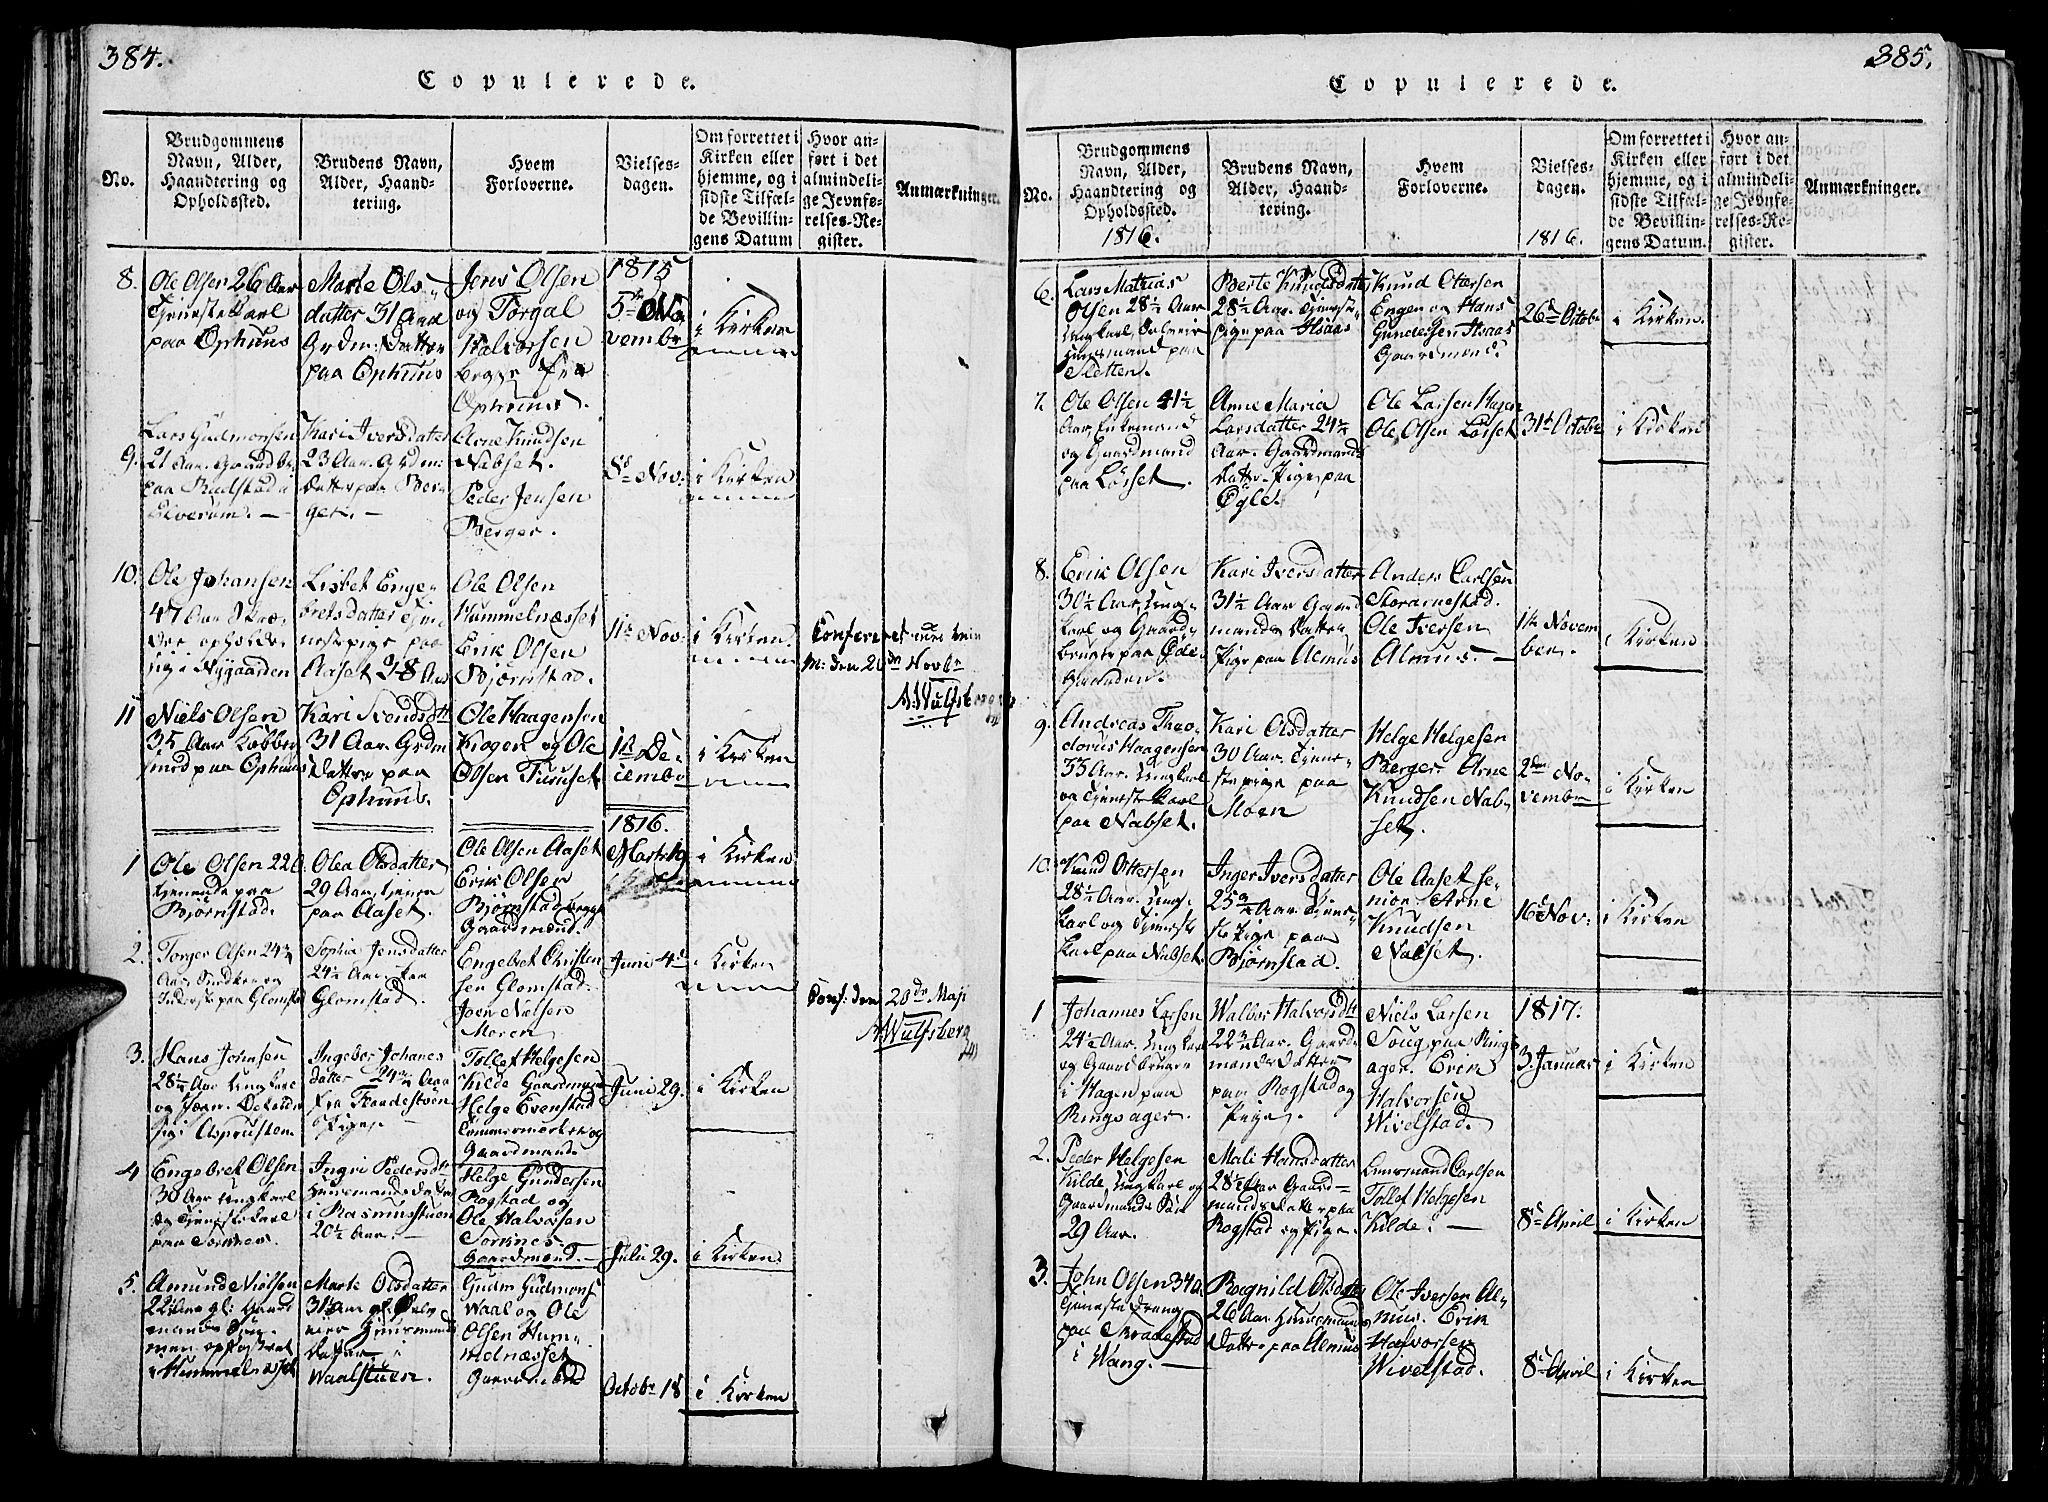 384.
Copulerede.
No.
Brudgommens
Navn, Alder,
Haandtering og
Opholdssted.
Brudens Navn,
Alder, Haand-
tering.
Hvem
Forloverne.
Vielses-
dagen.
Om forrettet i
Kirken eller
hjemme, og i
sidste Tilfæl-
de Bevillin-
gens Datum
Hvor an-
ført i det
almindeli-
ge Jevnfø-
relses-Re-
gister.
Anmærkninger.
8.
Ole Olsen 26 Aar
Tjeneste Karl
paa Ophuus
Marte Ols
datter 31 Aar
Grdm: Datter
paa Ophuus
Jens Olsen
og Torgal
Halvorsen
Ophuus.
1815
5te No
vembr
i Kirken
9.
Lars Gudmonsen
21 Aar. Gaardbr.
paa
Elverum. -
Kari Iversdatter
23 Aar. Grdm:
datter paa Ber-
get. -
Arne Knudsen
Nabset.
Peder Jensen
Berger.
Nov:
i Kirken
10.
Ole Johansen
47 Aar Skræ-
der opholder
sig i Nygaarden
Lisbet Enge-
bretsdatter Tjen
nestepige paa
Aaset 28 Aar
Ole Olsen
Hummelnæsset
Erik Olsen
Bjørnstad.
11te Nov:
i Kirken.
Confereret
M: den 20de Novbr
A: Wulfsberg
11
Niels Olsen
35 Aar Kobber
smed paa Ophuus
Kari Svendsdtt
31 Aar. Grdm
Datter paa
Ophuus.
Ole Haagensen
Krogen og Ole
Olsen Turuset
1te De-
cembr
i Kirken
1816.
1
Ole Olsen 22
tjenende paa
Bjørnstad.
Olea Olsdatter
29 Aar, tjener
paa Aaset.
Ole Olsen Aaset
Erik Olsen
Bjørnstad begge
Gaardmænd.
Marts 19
i Kirken
2.
Torger Olsen 24 3/4
Aar
Inderst paa Glomstad
Sophia Jensdatter
24 1/2 Aar. paa
Glomstad.
Engebret Christen
sen Glomstad.
Joen Nielsen
Moren
Juni 4de
i Kirken
Conf: den 20de Maji
A Wulfsberg
3.
Hans Johnsen
28 1/2 Aar Ungkarl
sig i Asprusten
Ingebor Johanes
datter 24 3/4 Aar
fra
Pige -
Tollef Helgesen
Kilde Gaardmand
Helge Evenstad
og
Gaardmænd
Juni 29.
i Kirken
4
Engebret Olsen
30 Aar Ungkarl
og Tjenestekarl
paa Sorknes.
Ingri Pedersdtt
Huusmands datter
i Rasmusstuen
20 1/2 Aar. -
Helge Gundersen
Rogstad og
Ole Halvorsen
Sorknes
Gaardmænd. -
Juli 29.
i Kirken.
5.
Amund Nielsen
22 Aar gl: Gaard
mands Søn.
Hummelnæsset
Marte Olsdatter
31 Aar gl.
Huusmands
datter i
Waalstuen.
Gudm Gudmons
Waal og Ole
Olsen Hum-
melnæsset
Gaardmænd
Octobr 18
i Kirken
385.
Copulerede.
No.
Brudgommens
Navn, Alder,
Haandtering og
Opholdssted.
1816.
Brudens Navn,
Alder, Haand-
tering.
Hvem
Forloverne.
Vielses-
dagen.
1816.
Om forrettet i
Kirken eller
hjemme, og i
sidste Tilfæl-
de Bevillin-
gens Datum.
Hvor an-
ført i det
almindeli-
ge Jevnfø-
relses-Re-
gister.
Anmærkninger.
6.
Lars Mathias
Olsen 28 1/2 Aar
Ungkarl,
Huusmand paa
Sletten.
Berte Knudsdatter
28 1/2 Aar. Tjeneste
pige paa
Knud Ottersen
Engen og Hans
Gundersen
Gaardmænd.
26de Octobr
i Kirken.
7.
Ole Olsen 41 1/2
Aar, Enkemand
og Gaardmand
paa Løsset.
Anne Maria
Larsdatter 24 3/4
Aar. Gaardmands
datter. Pige paa
Øgle.
Ole Larsen Hagen
Ole Olsen Løsset
31te Octobr
i Kirken
8.
Erik Olsen
30 1/2 Aar, Ung-
karl og Gaard
bruger paa Øde-
gaarden.
Kari Iversdatter
31 1/2 Aar Gaard
mands Datter
Pige paa Almus
Anders Carlsen
Storarnestad.
Ole Iversen
Almus. -
1te Novem
ber.
i Kirken
9.
Andreas Theo-
dorus Haagensen
33 Aar. Ungkarl
og Tjeneste Karl
paa Nabset.
Kari Olsdatter
30 Aar. Tjene-
ste pige paa
Moen
Helge Helgesen
Berger. Arne
Knudsen Nab-
set.
2den No-
vembr
i Kirken
10.
Knud Ottersen
28 1/2 Aar. Ung-
karl og Tjeneste
karl paa Nabset.
Inger Iversdatter
25 3/4 Aar. Tjene-
ste Pige paa
Bjørnstad.
Ole Aaset se-
nior. Arne
Knudsen
Nabset.
16de Nov:
i Kirken
1
Johannes Larsen
24 1/2 Aar. Ungkarl
og Gaard bruger
i Hagen paa
Ringsager.
Walbor Halvorsdtt
22 3/4 Aar. Gaard-
mands datter
paa Rogstad og
Pige.
Niels Larsen
Soug paa Rings-
ager. Erik
Halvorsen
Wivelstad.
1817.
3. Januar
i Kirken
2.
Peder Helgesen
Kilde, Ungkarl og
Gaardmands Søn
29 Aar.
Mali Hansdatter
28 1/2 Aar Gaard-
mands datter paa
Rogstad og Pige.
Lensmand Carlsen
Tollef Helgesen
Kilde. -
8de April
i Kirken
3.
John Olsen 34 a.
Tjeneste Dreng
paa
i Wang. -
Ragnild Olsdatter
26 Aar. Huusmands
Datter paa Almus
Ole Iversen Al-
mus. Erik
Halvorsen
Wivelstad.
8de April
i Kirken